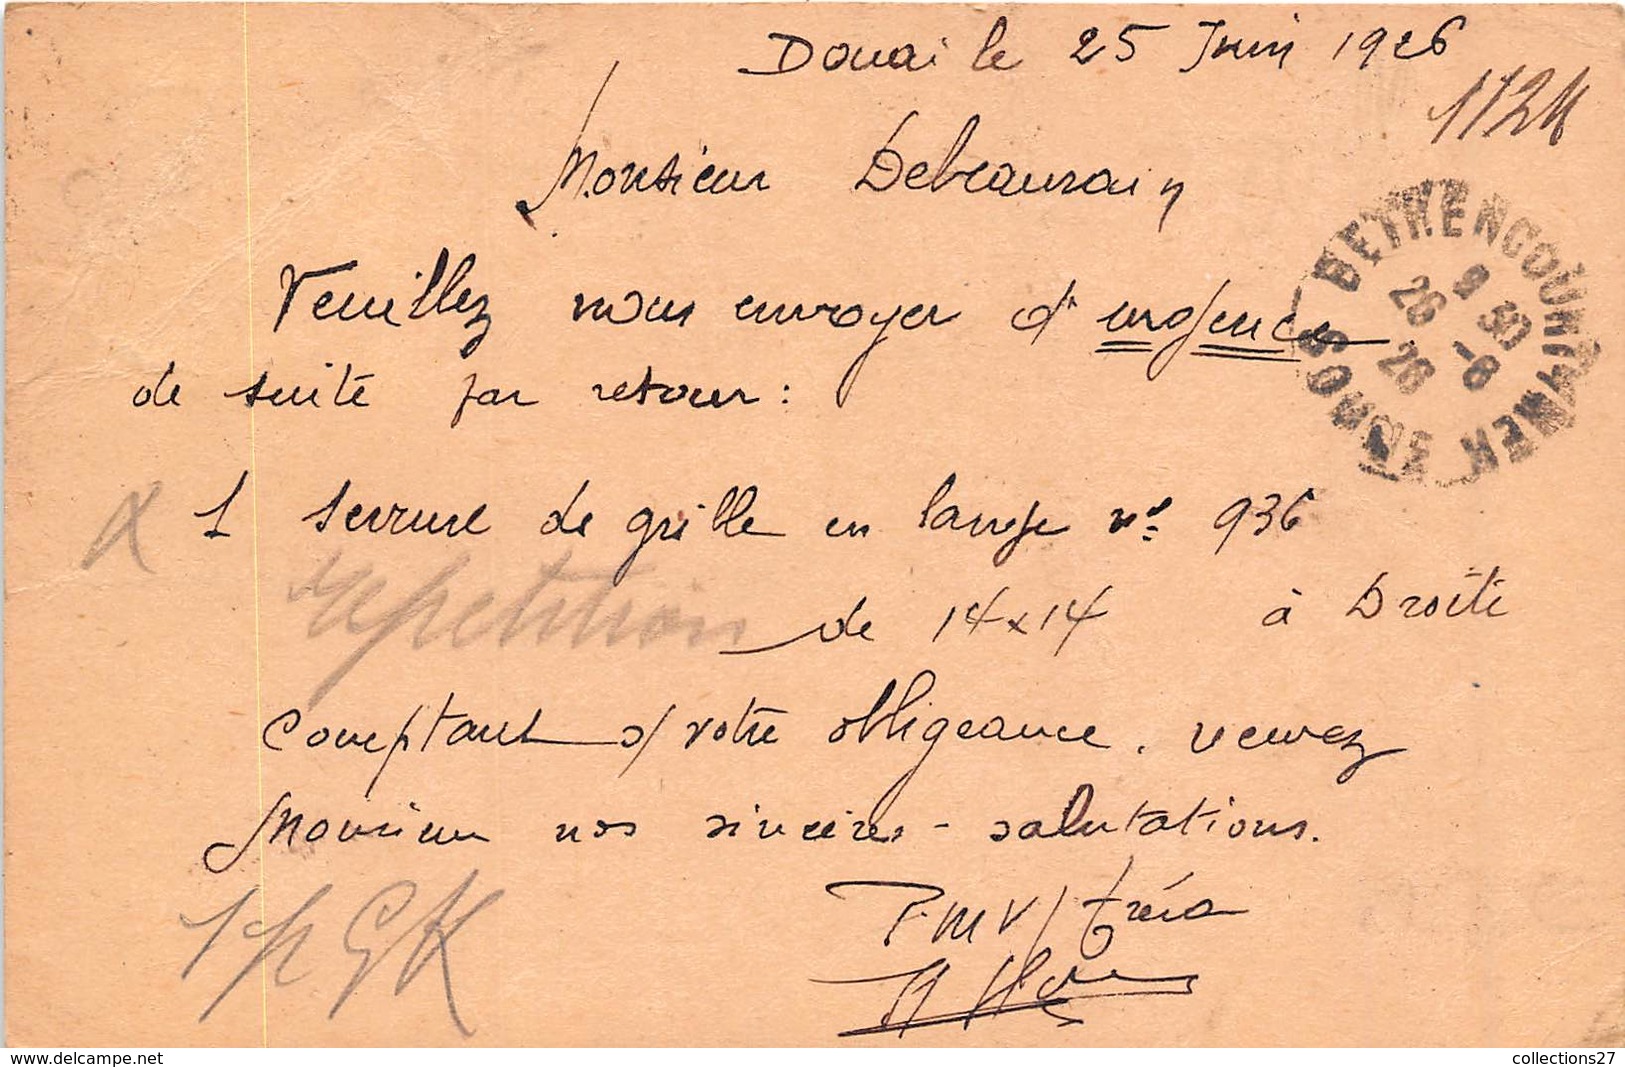 Douai le 25 Juin 1926
1124
Monsieur Debeaurain
BETHENCOURT-RIVIERE SOMME
9 30
26 -6
26
Veuillez nous envoyer d'urgence
de suite par retour :
1 serrure de grille en large n° 936
repetition
de 14x14 à Droite
Comptant s/ votre obligeance. veuvez
Monsieur nos sincères - salutations.
P M V /
www.delcampe.net
collections27